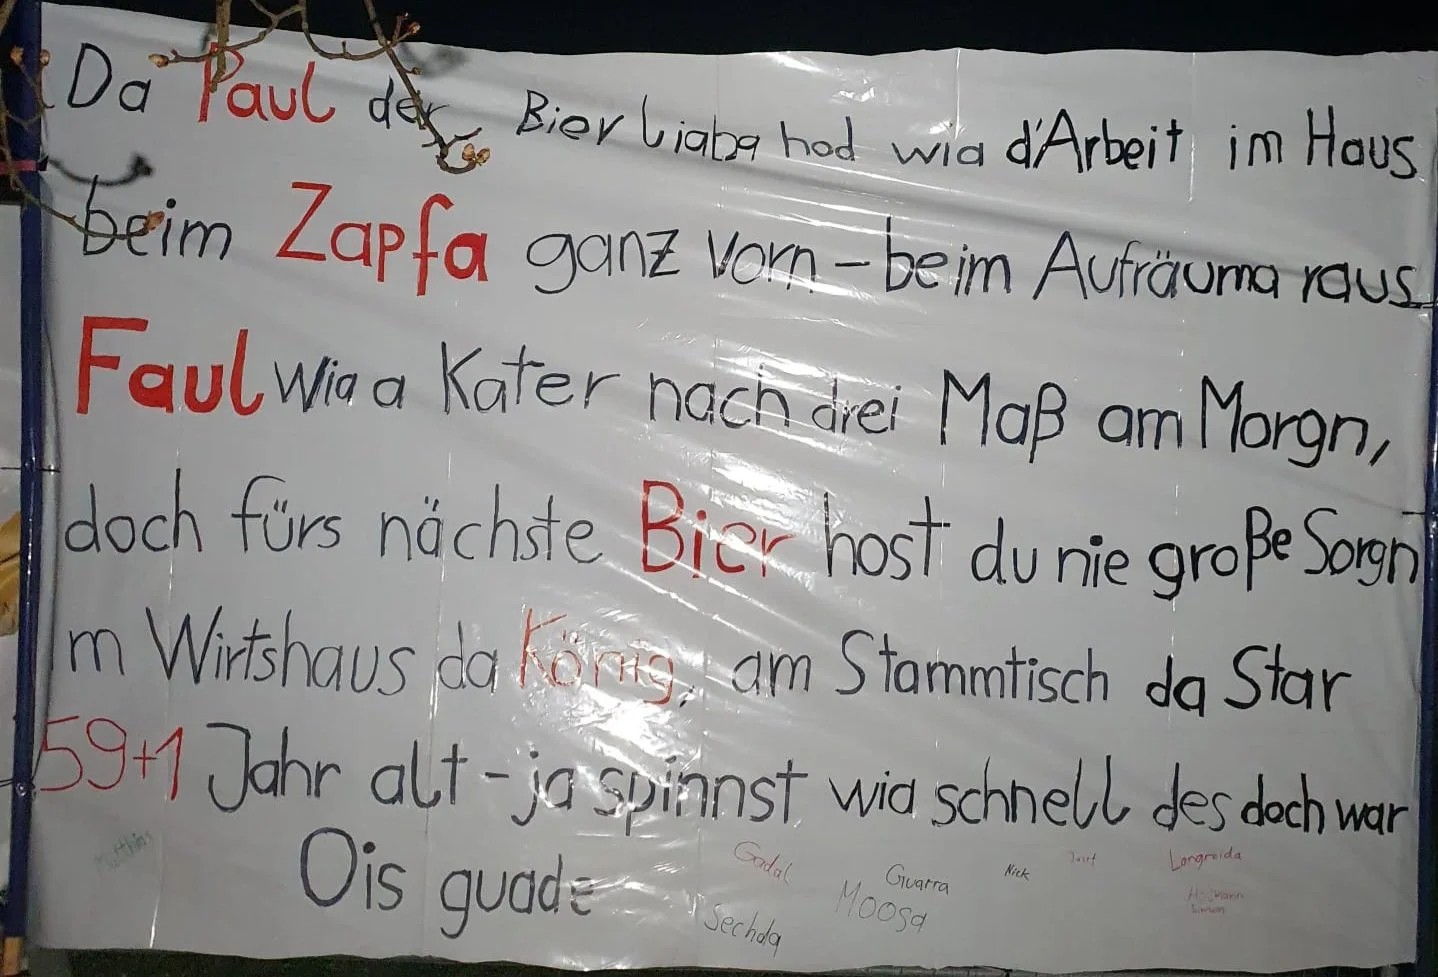 Da Paul der Bier liaba hod wia d'Arbeit im Haus
beim Zapfa ganz vorn – beim Aufräuma raus
Faul wia a Kater nach drei Maß am Morgn,
doch fürs nächste Bier host du nie große Sorgn
m Wirtshaus da König, am Stammtisch da Star
59+1 Jahr alt – ja spinnst wia schnell des doch war
Ois guade
Matthias
Gadal
Guarra
Nick
Josef
Longreida
Sechda
Moosa
Simon